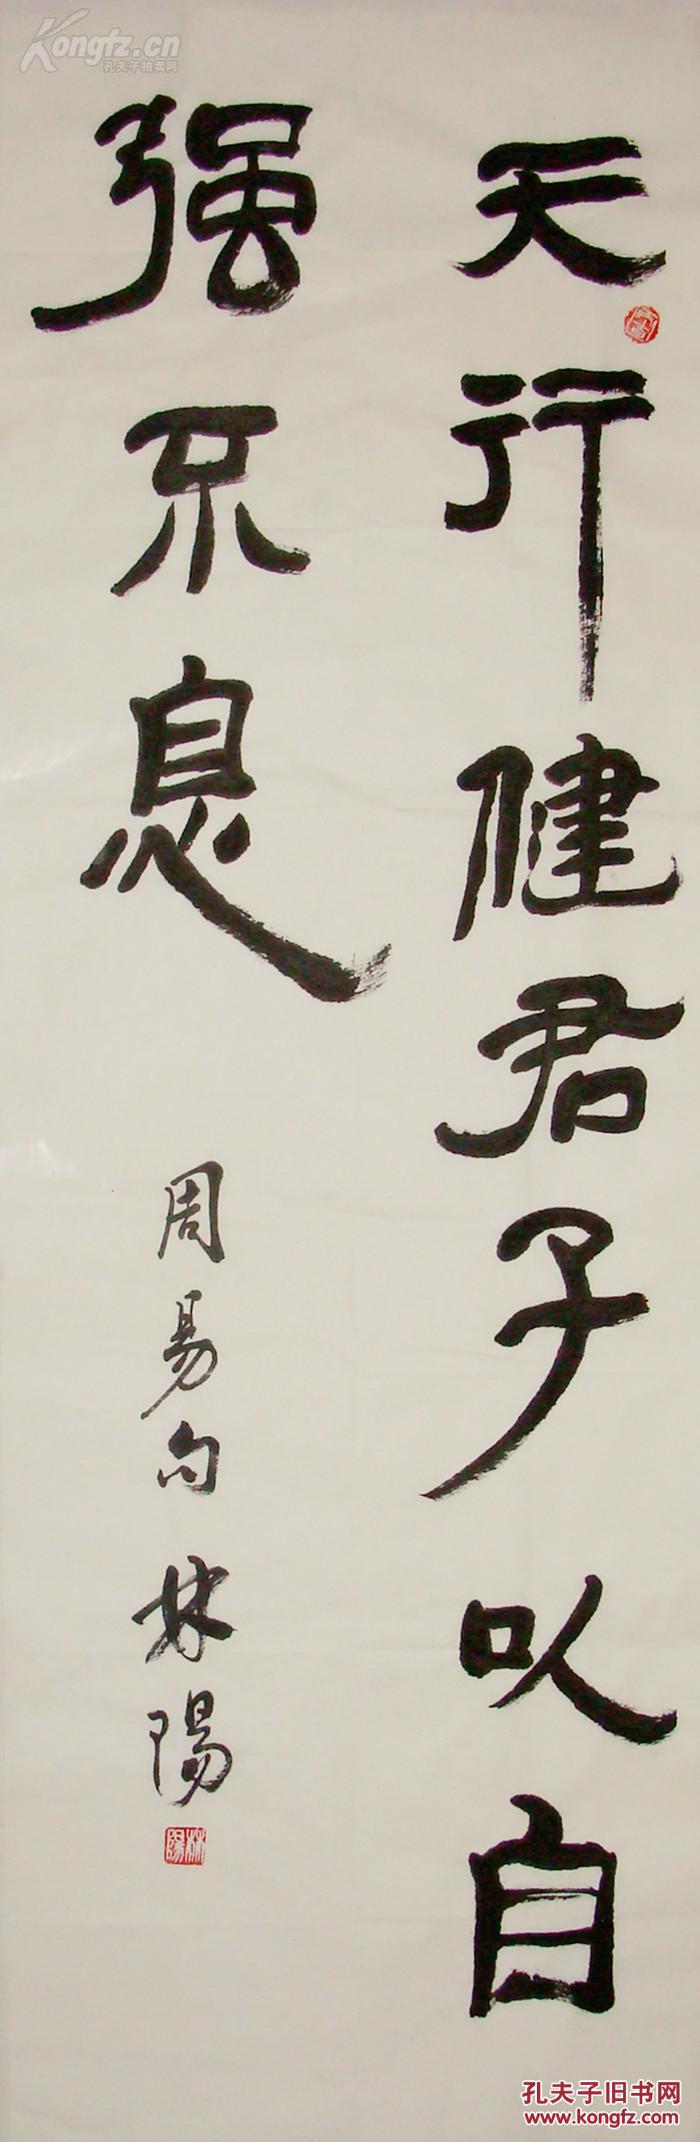 天行健君子以自
强不息
周易句 林陽
林陽
Kongfz.cn
孔夫子拍卖网
孔夫子旧书网
www.kongfz.com